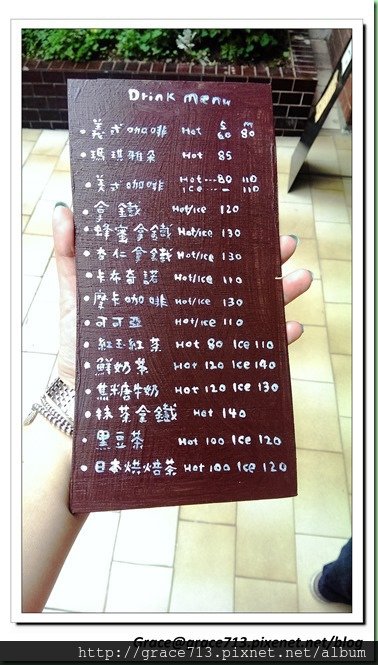 Drink menu
S M
• 義式咖啡 Hot 60 80
• 瑪琪雅朵 Hot 85
• 美式咖啡 Hot---80 110
ICE --- - 110
• 拿鐵 Hot/Ice 120
• 蜂蜜拿鐵 Hot/Ice 130
• 杏仁拿鐵 Hot/Ice 130
• 卡布奇諾 Hot/Ice 110
• 摩卡咖啡 Hot/Ice 130
• 可可亞 Hot/Ice 110
• 紅玉紅茶 Hot 80 Ice 110
• 鮮奶茶 Hot 120 Ice 140
• 焦糖牛奶 Hot 120 Ice 130
• 抹茶拿鐵 Hot 140
• 黑豆茶 Hot 100 Ice 120
• 日本烘焙茶 Hot 100 Ice 120
Grace@grace713.pixenet.net/blog
http://grace713.pixnet.net/album